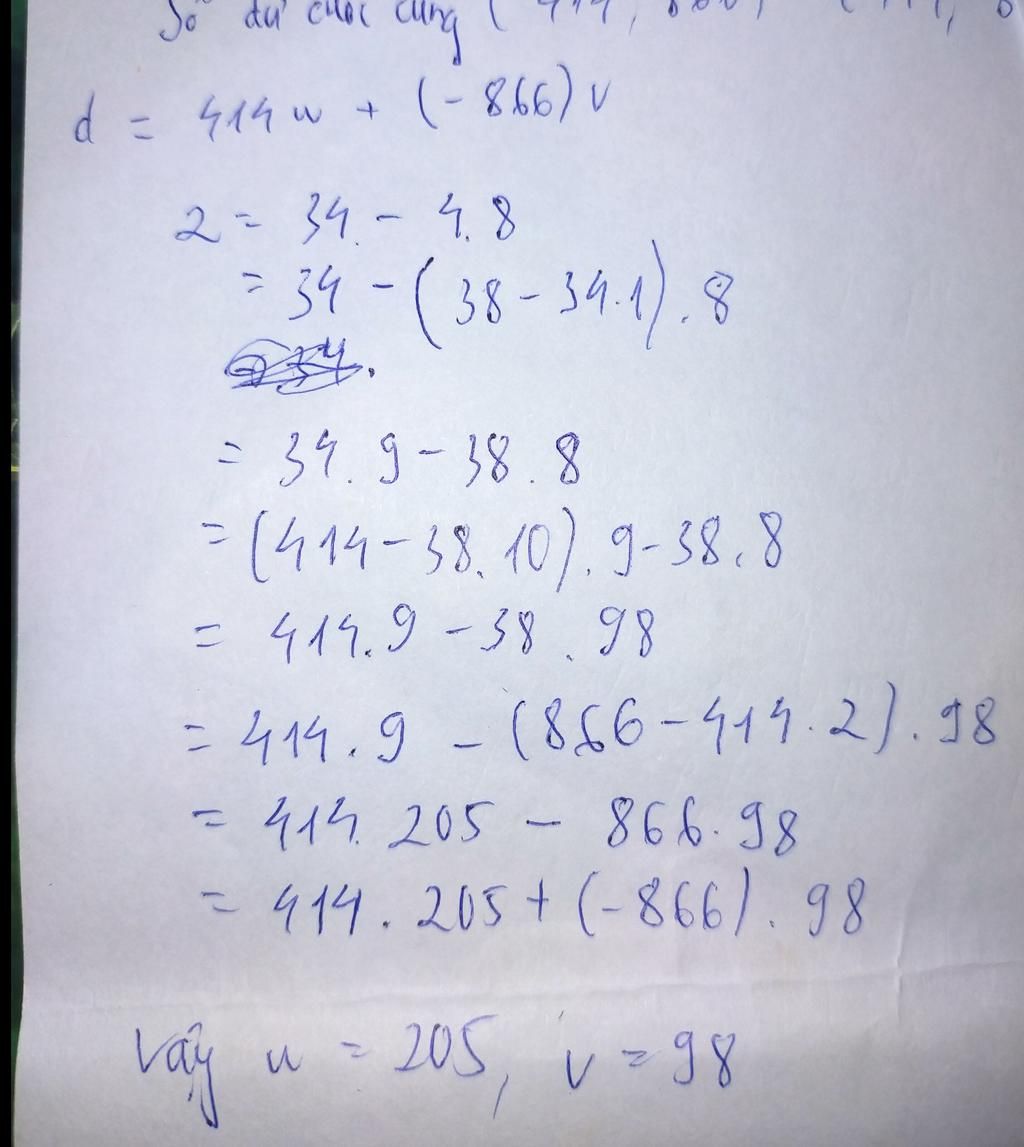 Số dư cuối cùng (414, 866)
d = 414u + (-866)v
2 = 34 - 4.8
= 34 - (38 - 34.1).8
= 34.9 - 38.8
= (414 - 38.10).9 - 38.8
= 414.9 - 38.98
= 414.9 - (866 - 414.2).98
= 414.205 - 866.98
= 414.205 + (-866).98
Vậy u = 205, v = 98